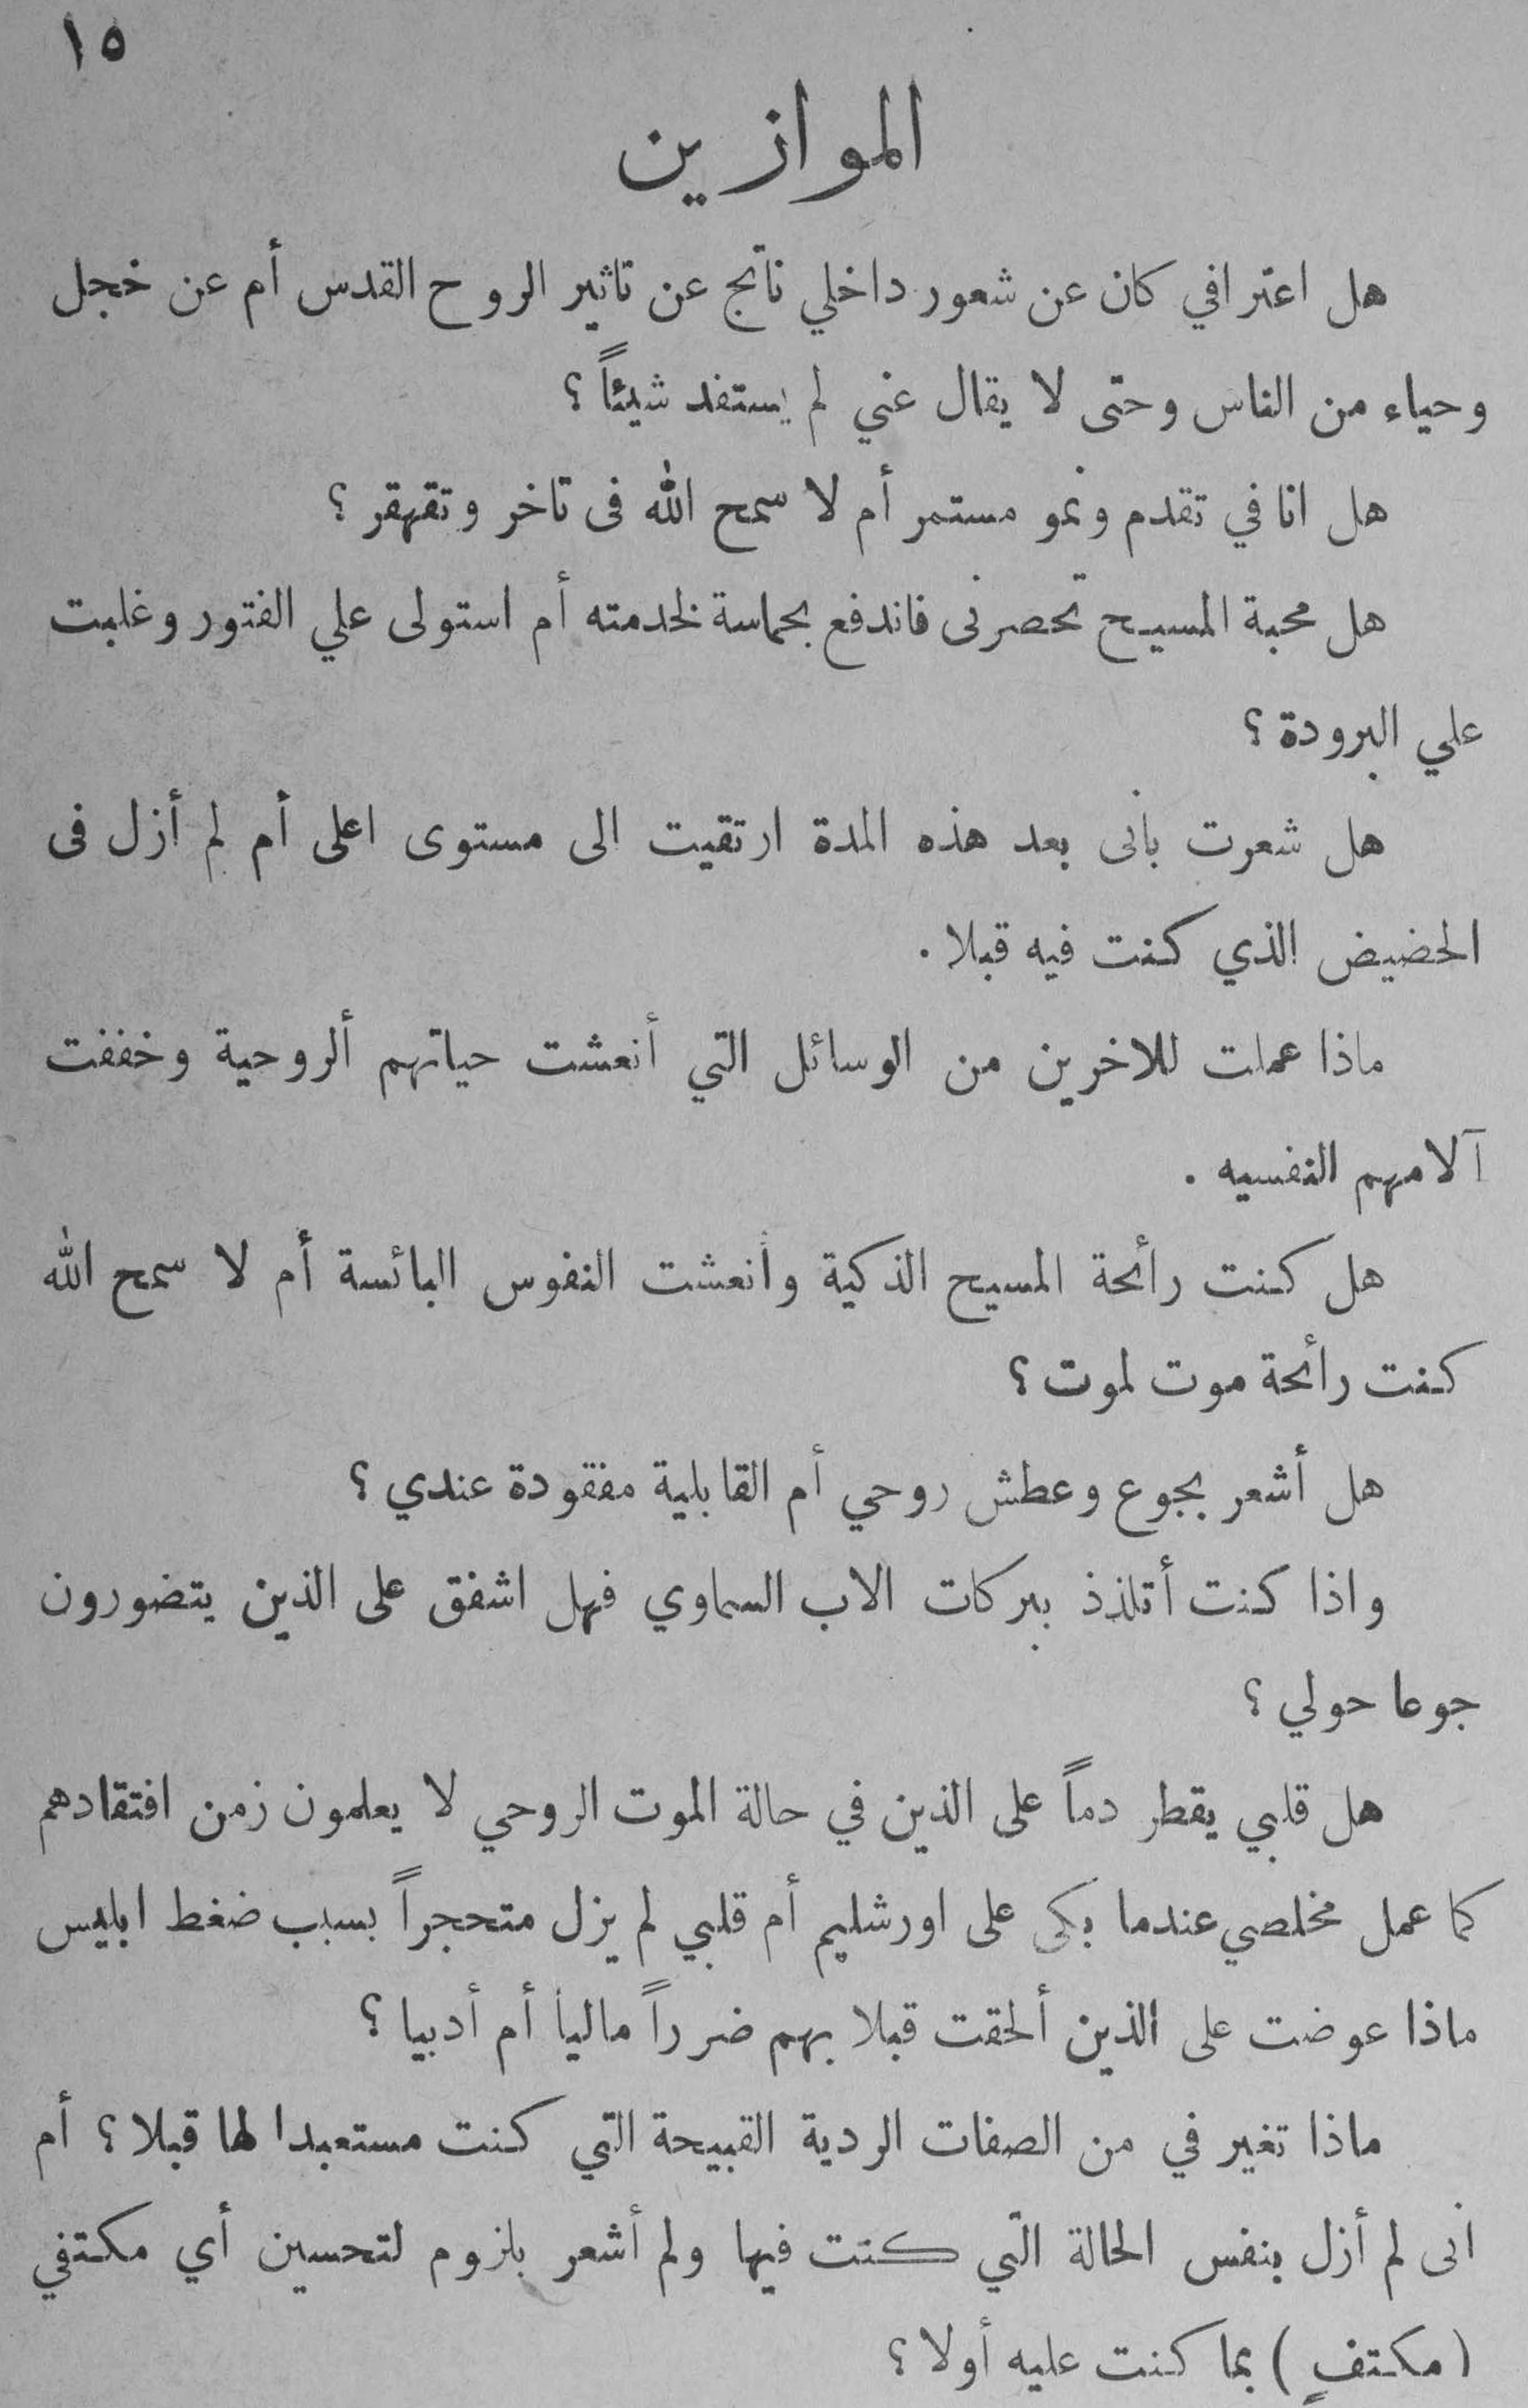 ١٥
الموازين
هل اعترافي كان عن شعور داخلي ناتج عن تاثير الروح القدس أم عن خجل
وحياء من الناس وحتى لا يقال عني لم يستفد شيئاً ؟
هل انا في تقدم ونمو مستمر أم لا سمح الله فى تاخر وتقهقر ؟
هل محبة المسيح تحصرنى فاندفع بحماسة لخدمته أم استولى علي الفتور وغلبت
علي البرودة ؟
هل شعرت بأنى بعد هذه المدة ارتقيت الى مستوى اعلى أم لم أزل فى
الحضيض الذي كنت فيه قبلا .
ماذا عملت للاخرين من الوسائل التي أنعشت حياتهم ألروحية وخففت
آلامهم النفسيه .
هل كنت رأئحة المسيح الذكية وأنعشت النفوس البائسة أم لا سمح الله
كنت رأئحة موت لموت ؟
هل أشعر بجوع وعطش روحي أم القابلية مفقودة عندي ؟
واذا كنت أتلذذ ببركات الاب السماوي فهل اشفق على الذين يتضورون
جوعا حولي ؟
هل قلبي يقطر دماً على الذين في حالة الموت الروحي لا يعلمون زمن افتقادهم
كما عمل مخلصي عندما بكى على اورشليم أم قلبي لم يزل متحجراً بسبب ضغط ابليس
ماذا عوضت على الذين ألحقت قبلا بهم ضرراً مالياً أم أدبيا ؟
ماذا تغير في من الصفات الردية القبيحة التي كنت مستعبدا لها قبلا ؟ أم
انى لم أزل بنفس الحالة التي كنت فيها ولم أشعر بلزوم لتحسين أي مكتفي
( مكتفٍ ) بما كنت عليه أولا ؟